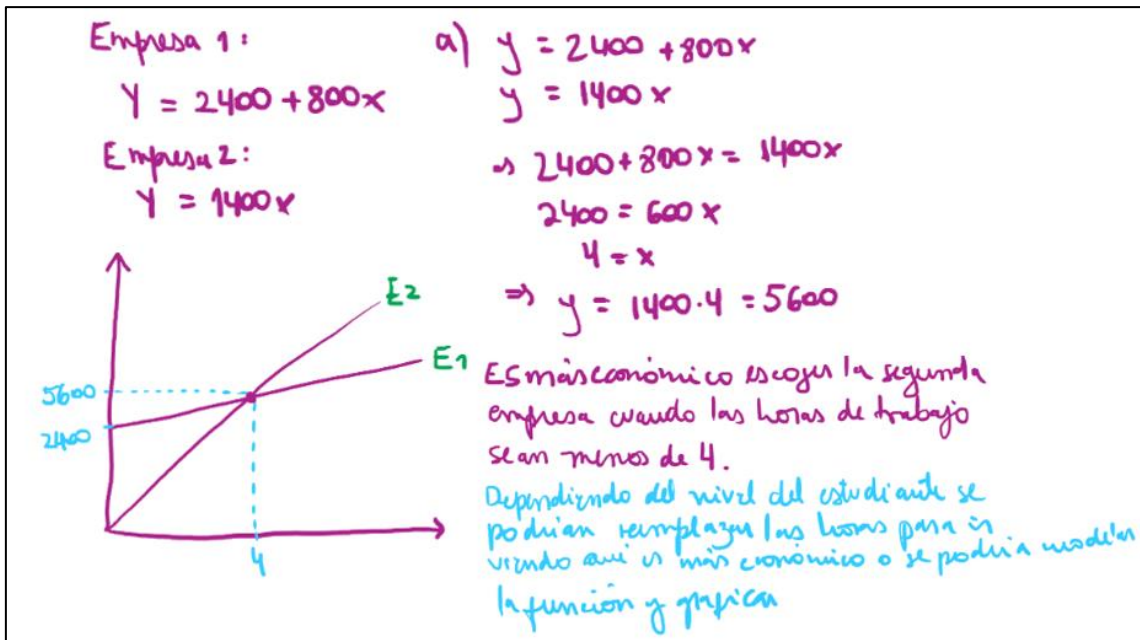 Empresa 1:
Y = 2400 + 800x
Empresa 2:
Y = 1400x
a) y = 2400 + 800x
y = 1400x
⇒ 2400 + 800x = 1400x
2400 = 600x
4 = x
⇒ y = 1400·4 = 5600
Es más económico escoger la segunda
empresa cuando las horas de trabajo
sean menos de 4.
Dependiendo del nivel del estudiante se
podrían remplazar las horas para ir
viendo que es más económico o se podría modelar
la función y graficar
E2
E1
5600
2400
4